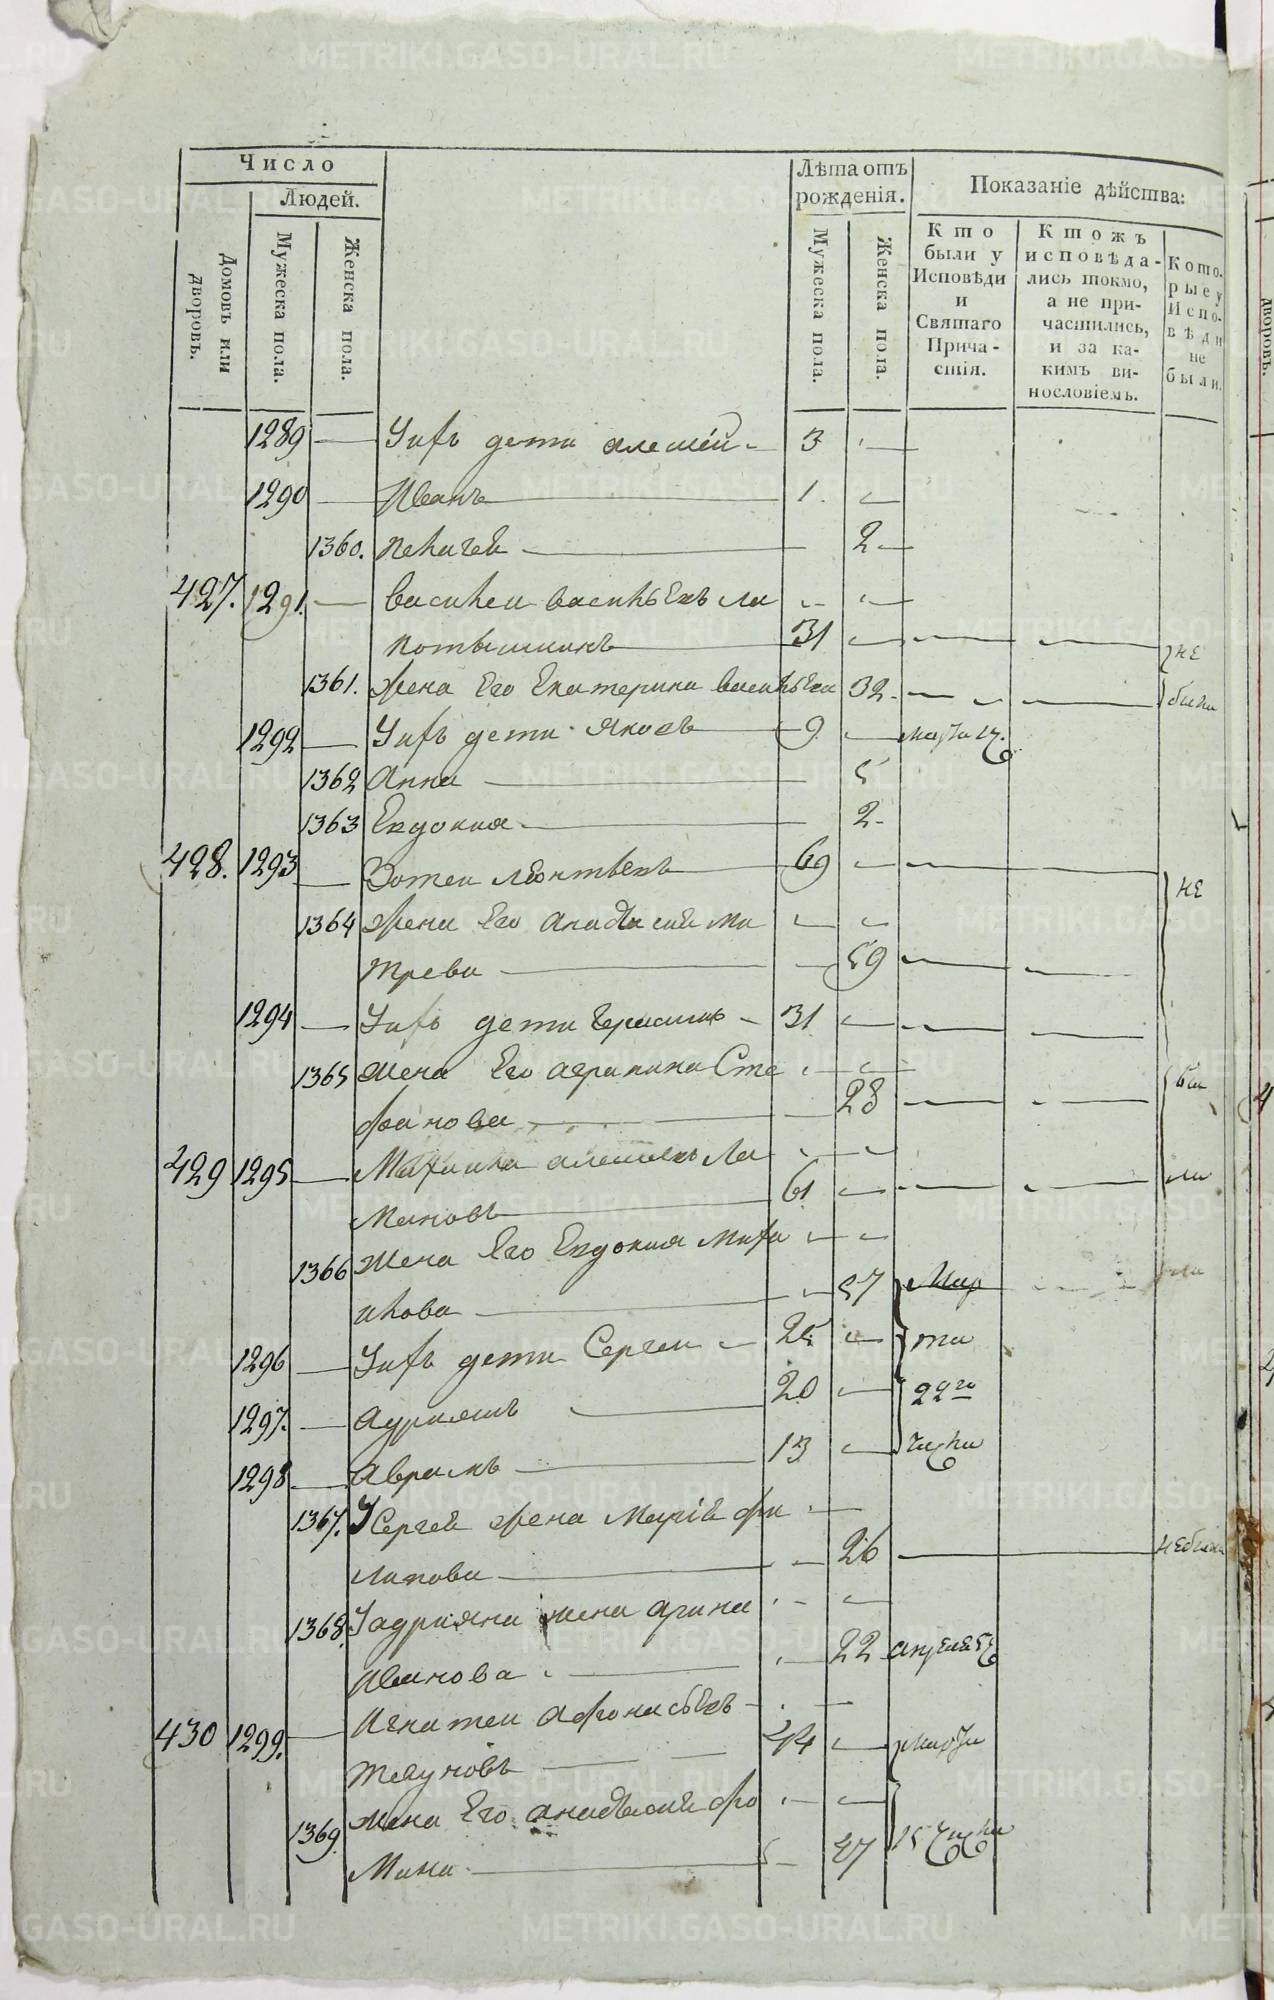 Число
Людей.
Домовъ или дворовъ.
Мужеска пола.
Женска пола.
Лѣта отъ рожденія.
Мужеска пола.
Женска пола.
Показаніе дѣйства:
Кто были у Исповѣди и Святаго Прича-стія.
Ктожъ исповѣда-лись токмо, а не при-частились, и за ка-кимъ ви-нословіемъ.
Кото-рые у Испо-вѣди не были.
1289 — Ихъ дети алеѯѣи — 3 —
1290 — Иванъ — 1. —
1360. — 2 —
427. 1291. — василеи васильевъ ла — —
31 — — — не
1361. Жена Его Екатерина васильева 32. — — — были
1292 — Ихъ дети Яковъ — 9 — марта 17
1362 Анна — 5
1363 Евдокия — 2 —
428. 1293 — Зотеи леонтьевъ — 69 — — — не
1364 Жена Его анастасия ми — —
трева — — 59 — —
1294 — Ихъ дети Герасимъ — 31 — — —
1365 Жена Его агрипина Сте — —
фанова — — 28 — — бы
429 1295 — Михаила алеѯѣевъ Ла — —
мановъ — 61 — — — ли
1366 Жена Его Евдокия миха — —
илова — — 57 Мар
1296 — Ихъ дети Сергеи — 25 — та
1297. — адриянъ — 20 — 22го
1298 — аврамъ — 13 — числа
1367. У Сергея жена Мария фи —
липова — — 26 — небыла
1368. У адрияна жена арина — —
Иванова — — 22 апреля 5
430 1299. — Игнатеи афонасьевъ — —
тягуновъ — 44 — марта
1369. Жена Его анастасия фо — —
мина — 47 15 числа
METRIKI.GASO-URAL.RU